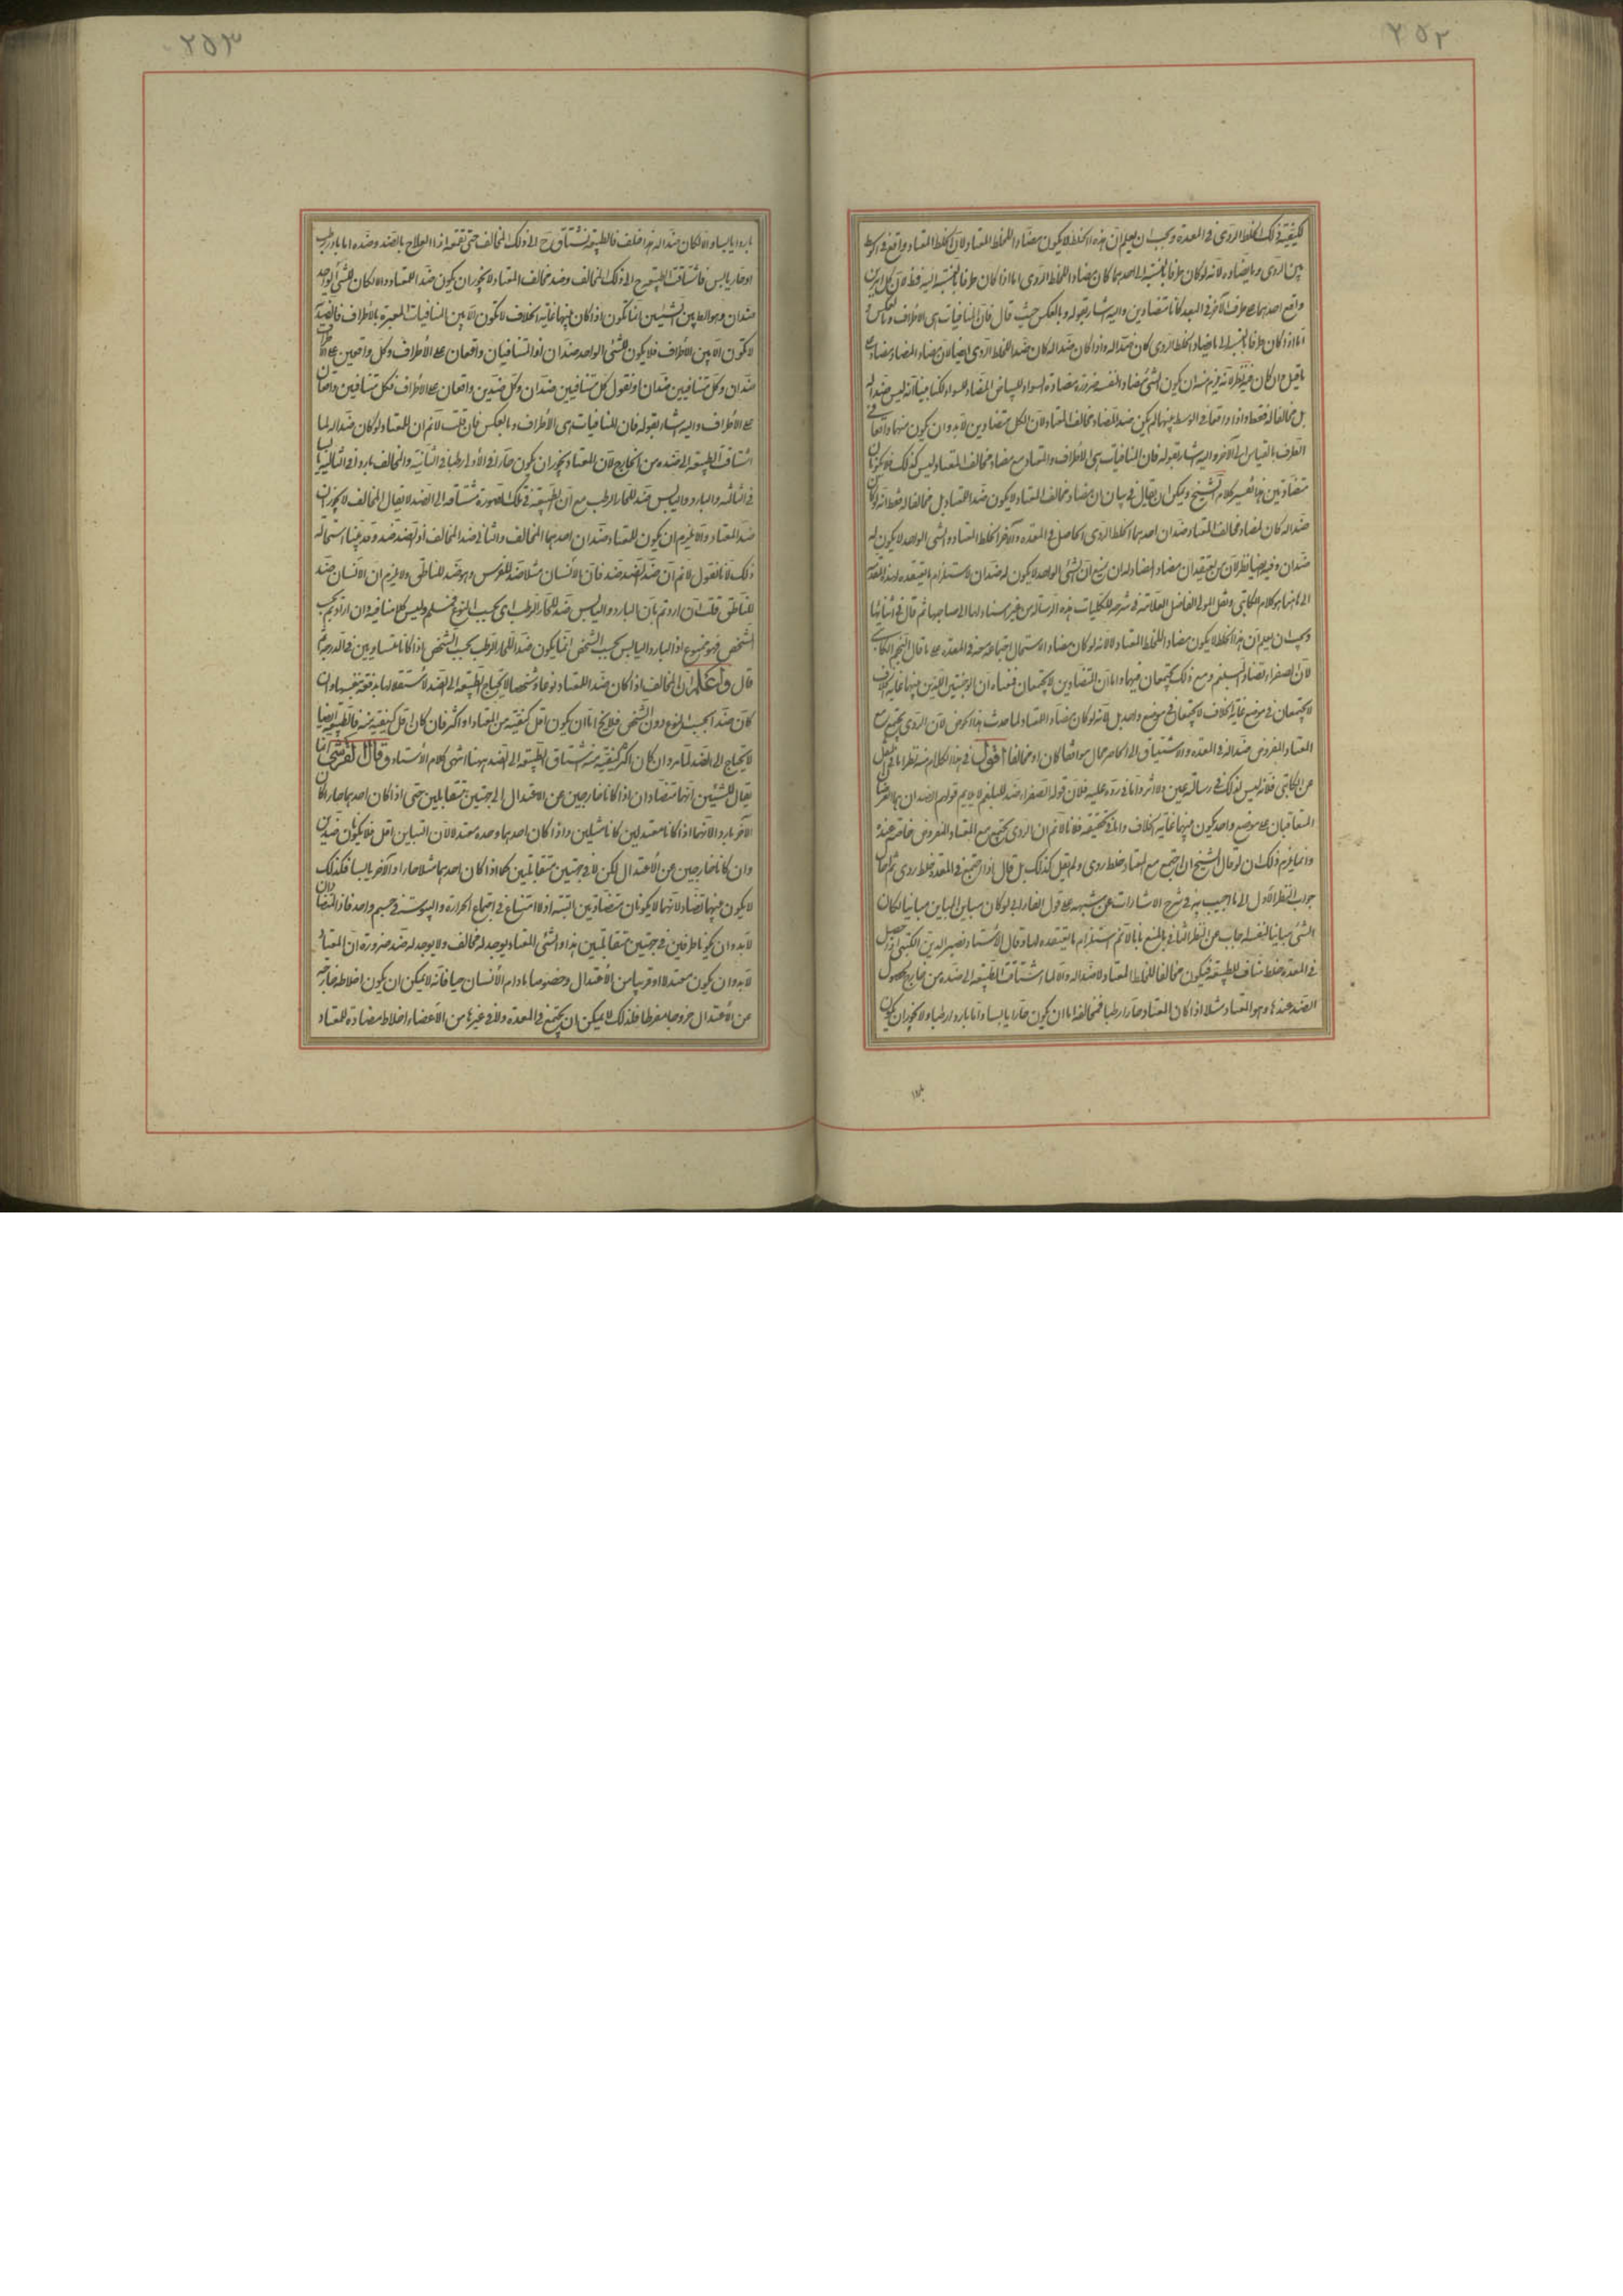 ٢٥٢
لكيفية ذلك الخلط الردى فى المعدة ويجب ان يعلم ان هذه الخلط لا يكون مضادا للخلط المعتاد لان الخلط المعتاد واقع فى الوسط
بين الردى وما يضاده ولانه لو كان طرفا بالنسبة الى احدهما كان مضادا للخلط الردى اما اذا كان طرفا بالنسبة اليه فظ لان كل امرين
واقع احدهما على طرف الآخر فى البعد كانا متضادين واليه اشار بقوله وبالعكس حيث قال فان المنافيات هى الأطراف وبالعكس و
اما اذا كان طرفا بالنسبة الى ما يضاد الخلط الردى كان ضدا له واذا كان ضدا له كان ضدا للخلط الردى ايضا لان مضاد المضاد مضاد على
ما قيل وان كان فيه نظر لانه يلزم منه ان يكون الشئ مضادا لنفسه ضرورة مضادة السواد للبياض المضاد للسواد لكنا بينا انه ليس ضدا له
بل مخالفا له فقط واذا واقعا فى الوسط بينهما لم يكن ضد المضاد مخالف المعتاد لان لكل متضادين لابد وان يكون منهما واقعا فى
الطرف بالقياس الى الآخر واليه اشار بقوله فان المنافيات هى الأطراف والمعتاد مع مضاد مخالف المعتاد ليس كذلك فلا يكونان
متضادين هذا تفسير كلام الشيخ ويمكن ان يقال فى بيان ان مضاد مخالف المعتاد لا يكون ضد المعتاد بل مخالفا له فقط انه لو كان
ضدا له كان لمضاد مخالف المعتاد ضدان احدهما الخلط الردى الحاصل فى المعدة والآخر الخلط المعتاد والشئ الواحد لا يكون له
ضدان وفيه ايضا نظر لان من يعتقد ان مضاد المضاد له ان يمنع ان الشئ الواحد لا يكون له ضدان لاستلزام ما يعتقده لهذا المعتقد
الى هاهنا هو كلام الكاتبى ونقل المولى الفاضل العلامة فى شرحه للكليات هذه الرسالة من غير اسناد لها الى صاحبها ثم قال فى اثنائها
ويجب ان يعلم ان هذا الخلط لا يكون مضادا للخلط المعتاد لا لانه لو كان مضادا لاستحال اجتماعه معه فى المعدة على ما قال النجم الكاتبى
لان الصفراء تضاد البلغم ومع ذلك يجتمعان فيها واما ان المتضادين لا يجتمعان فمعناه ان الوجوديتين اللذين بينهما غاية الخلاف
لا يجتمعان فى موضع غاية الخلاف لا يجتمعان فى موضع واحد بل لانه لو كان مضادا للمعتاد لما حدث هذا المرض لان الردى يجتمع مع
المعتاد المفروض ضدا له فى المعدة والاشتياق الى الحاصل محال موافقا كان او مخالفا أقول فى هذا الكلام منه نظر اما فى النقل
عن الكاتبى فلانه ليس لذلك فى رسالته عين ولا اثر واما فى رده عليه فلان قوله الصفراء ضد للبلغم لا يلايم قولهم الضدان هما العرضان
المتعاقبان على موضع واحد يكون بينهما غاية الخلاف واما فى تحقيقه فلانا لا نم ان الردى يجتمع مع المعتاد المفروض خاصة عنده
وانما يلزم ذلك ان لو قال الشيخ ان اجتمع مع المعتاد خلط ردى ولم يقل كذلك بل قال اذا اجتمع فى المعدة خلط ردى ثم اجاب
جواب النظر الأول الى ما اجيب به فى شرح الاشارات عن شبهة على قول الفارابى لو كان مباين المباين مباينا لكان
الشئ مباينا لنفسه اجاب عن النظر الثانى بالمنع بانا لا نم استلزام ما يعتقده لها وقال الأستاد نصير الدين الكشى اذا حصل
فى المعدة خلط مناف للطبيعة فيكون مخالفا للخلط المعتاد لا ضدا له والا لما اشتاقت الطبيعة الى ضده من خارج لحصول
الضد عندها وهو المعتاد مثلا اذا كان المعتاد حارا رطبا فمخالفه اما ان يكون حارا يابسا واما باردا رطبا ولا يجوز ان يكون
٢٥٣
باردا يابسا والا لكان ضدا له هذا خلف فالطبيعة تشتاق ح الى ذلك المخالف حتى تقمعه اذ العلاج بالضد وضده اما بارد رطب
او حار يابس فاشتاقت الطبيعة ح الى ذلك المخالف وضد مخالف المعتاد لا يجوز ان يكون ضد المعتاد والا لكان للشئ الواحد
ضدان وهو الط بين الشيئين انما تكون اذا كان بينهما غاية الخلاف لا تكون الا بين المنافيات المعبرة بالأطراف فالضد
لا تكون الا بين الأطراف فلا يكون للشئ الواحد ضدان اذ المتنافيان واقعان على الأطراف وكل واقعين على الأطراف
ضدان وكل متنافيين ضدان او نقول كل متنافيين ضدان وكل ضدين واقعان على الاطراف فكل متنافيين واقعان
على الأطراف واليه اشار بقوله فان المنافيات هى الأطراف وبالعكس فان قلت لا نم ان المعتاد لو كان ضدا له لما
اشتاقت الطبيعة الى ضده من الخارج لان المعتاد يجوز ان يكون حارا فى الأولى رطبا فى الثانية والمخالف باردا فى الثالثة يابسا
فى الثالثة والبارد واليابس ضد للحار الرطب مع ان الطبيعة فى تلك الصورة مشتاقة الى الضد لا يقال المخالف لا يجوز ان
ضد المعتاد والا يلزم ان يكون للمعتاد ضدان احدهما المخالف والثانى ضد المخالف اذ لضد ضد ضد وقد بينا استحالة
ذلك لانا نقول لا نم ان ضد الضد ضد فان الانسان مثلا ضد للفرس وهو ضد للناطق ولا يلزم ان الانسان ضد
للناطق قلت ان اردتم بان البارد واليابس ضد للحار الرطب اى بحسب النوع فمسلم وليس كلامنا فيه وان اردتم بحسب
الشخص فهو ممنوع اذ البارد اليابس بحسب الشخص انما يكون ضد اللحار الرطب بحسب الشخص اذا كانا متساويين فى الدرجة ثم
قال واعلم ان المخالف اذا كان ضد اللمعتاد نوعا وشخصا لا يحتاج الطبيعة الى الضد لاستقلالها بدفعه بنفسها وان
كان ضدا بحسب النوع دون الشخص فلا يخ اما ان يكون اقل كيفية من المعتاد او اكثر فان كان اقل كيفية منه فالطبيعة ايضا
لا يحتاج الى الضد لما مر وان كان اكثر كيفية منه اشتاق الطبيعة الى الضد هنا انتهى كلام الأستاد وقال القرشى انما
يقال للشيئين انهما متضادان اذا كانا خارجين عن الاعتدال الى جهتين متقابلين حتى اذا كان احدهما حارا كان
الآخر باردا لانهما اذا كانا معتدلين كانا مثلين واذا كان احدهما وحده معتدلا لان التباين اقل فلا يكونان ضدين
وان كانا خارجين عن الأعتدال لكن لا فى جهتين متقابلتين كما اذا كان احدهما مثلا حارا والآخر يابسا فكذلك
لا يكون بينهما تضاد لانهما لا يكونان متضادين البتة اذ لا امتناع فى اجتماع الحرارة واليبوسة فى جسم واحد فاذ المتضادان
لابد وان يكونا طرفين فى جهتين متقابلتين هذا والشئ المعتاد يوجد له مخالف ولا يوجد له ضد ضرورة ان المعتاد
لابد وان يكون معتدلا او قريبا من الأعتدال وخصوصا ما دام الأنسان حيا فانه لا يمكن ان يكون اخلاطه خارجة
عن الأعتدال خروجا مفرطا فلذلك لا يمكن ان يجتمع فى المعدة ولا فى غيرها من الأعضاء اخلاط مضادة للمعتاد